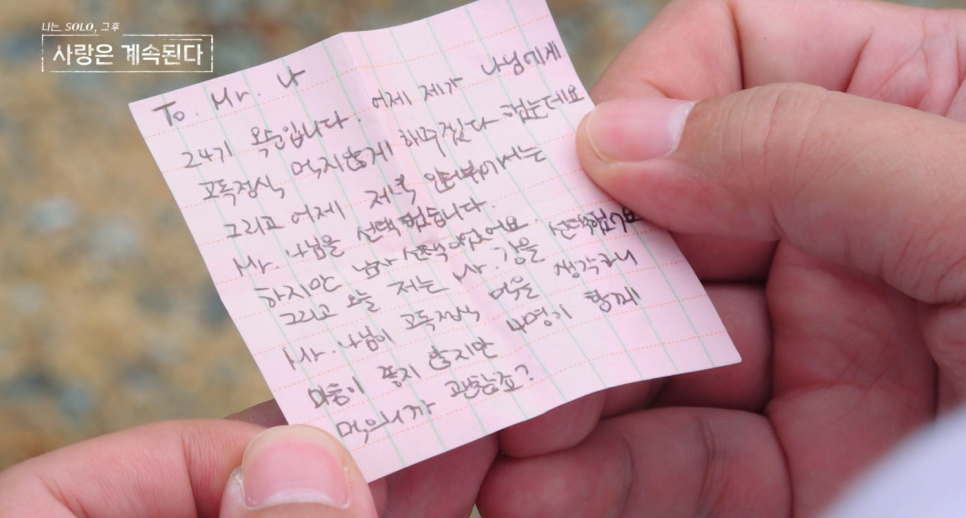 나는 SOLO, 그 후
사랑은 계속된다
To. Mr. 나
24기 옥순입니다. 어제 제가 나님에게
고독정식 먹지않게 해주겠다 했는데요
그리고 어제 저녁 인터뷰에서는
Mr. 나님을 선택했습니다.
하지만 남자 선택이었어요.
그리고 오늘 저는 Mr. 강을 선택했구요
Mr. 나님이 고독정식 먹을 생각하니
마음이 좋지 않지만 4명이 함께
먹으니까 괜찮죠?